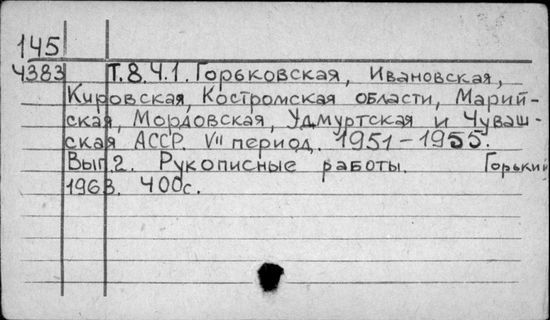 145
4383 Т.8.Ч.1. Горьковская, Ивановская,
Кировская, Костромская области, Марий-
ская, Мордовская, Удмуртская и Чуваш-
ская АССР. VII период. 1951-1955.
Вып.2. Рукописные работы. Горький
1963. 400с.